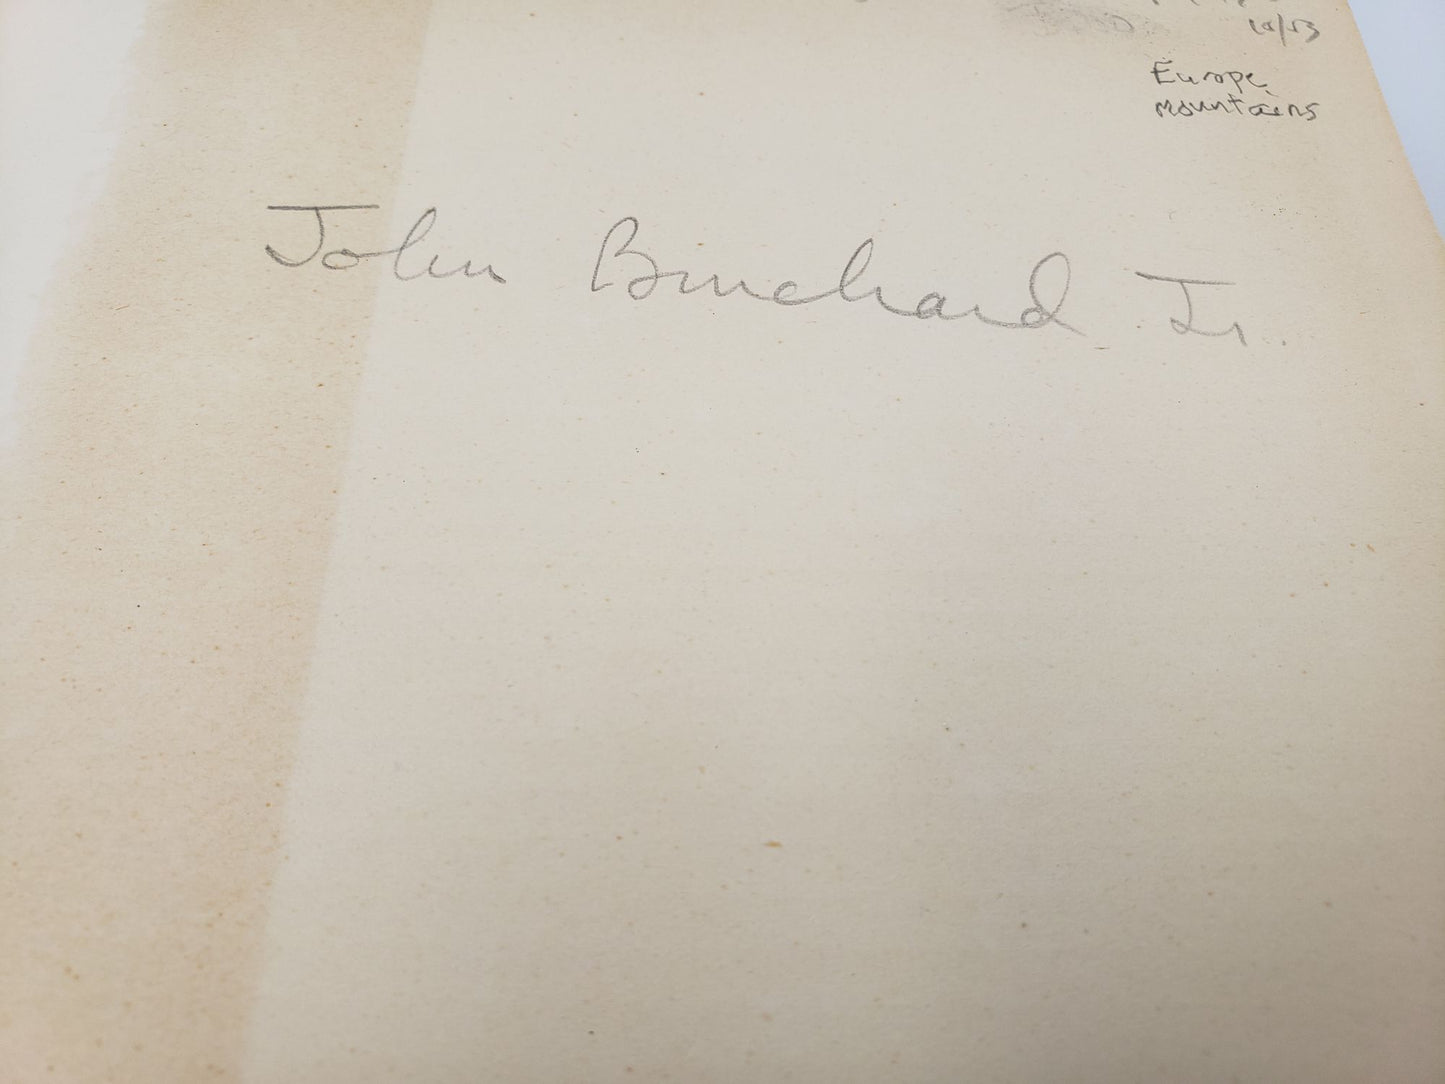 10/53
Europe,
mountains
John Burchard Jr.